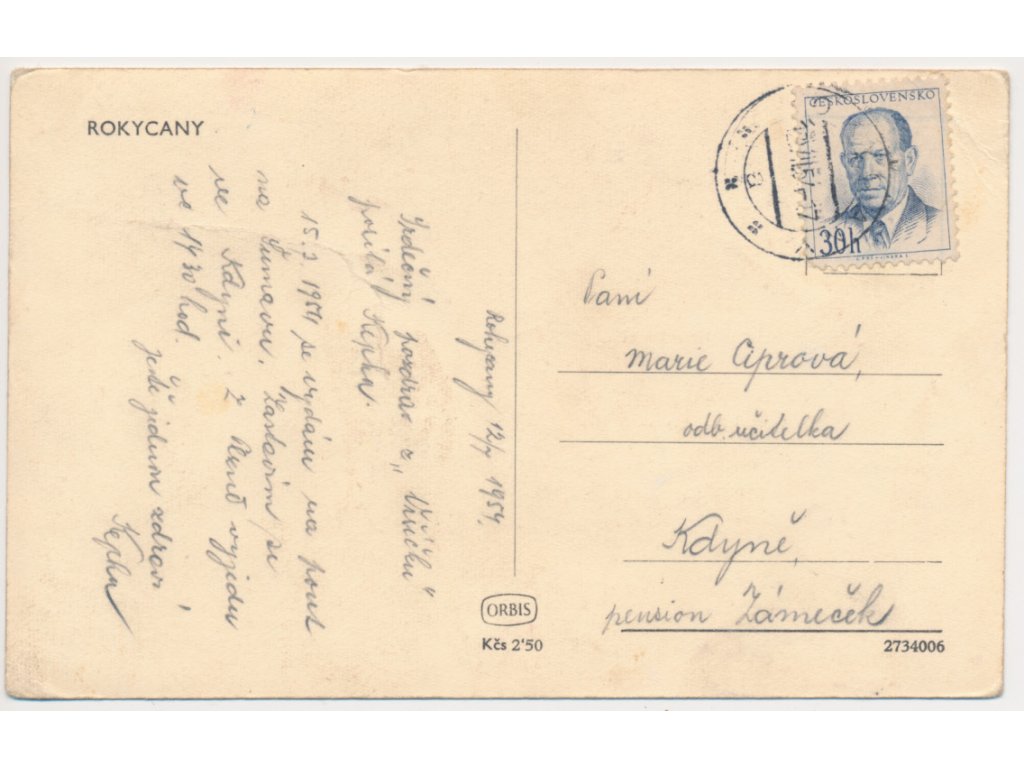 ROKYCANY
Rokycany 12/7 1954.
Srdečný pozdrav z „Vršíčku"
posílá Kepka.
15. 1954 se vydám na pouť
na Šumavu. Zastavím se
ve Kdyni. Z vyjedu
ve 14 30 hod.
jedním zdraví
Kepka
ČESKOSLOVENSKO
30h
Paní
Marie Ciprová,
odb. učitelka
Kdyně,
pension Zámeček
ORBIS
Kčs 2'50
2734006